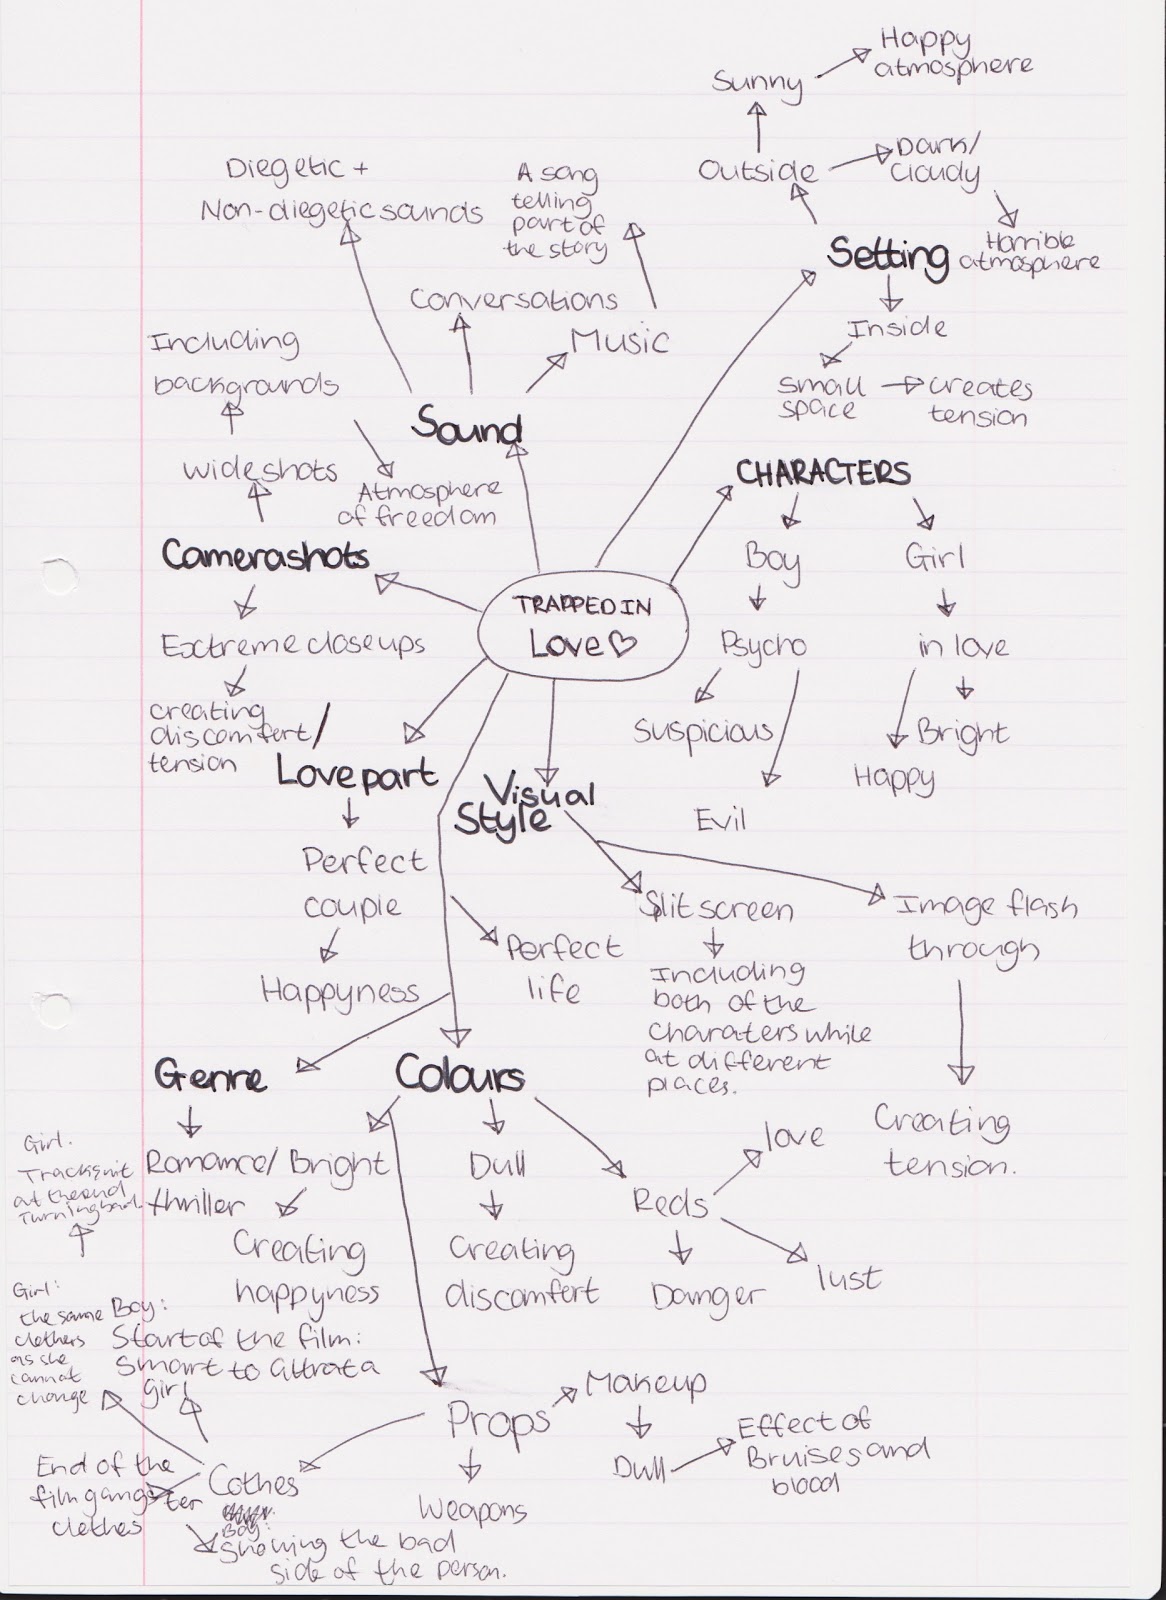 Happy
atmosphere
Sunny
Outside
Dark/
Cloudy
Horrible
atmosphere
Setting
Inside
Small
space
creates
tension
Diegetic +
Non-diegetic sounds
A song
telling
part of
the story
Conversations
Music
Sound
Including
backgrounds
wide shots
Atmosphere
of freedom
Camerashots
Extreme closeups
creating
discomfert/
tension
CHARACTERS
Boy
Psycho
Suspicious
Evil
Girl
in love
Bright
Happy
TRAPPED IN
Love♡
Love part
Perfect
couple
Happyness
Perfect
life
Visual
Style
Slit screen
Including
both of the
Charaters while
at different
places.
Image flash
through
Creating
tension.
Genre
Romance/
thriller
Colours
Bright
Creating
happyness
Dull
Creating
discomfert
Reds
love
Danger
lust
Girl.
Tracksuit
at the end
Turning bad
Girl:
the same
clothers
as she
cannot
change
Boy:
Start of the film:
Smart to attrat a
girl
Props
Makeup
Dull
Effect of
Bruises and
blood
Weapons
Cothes
End of the
film gangster
clothes
Boy:
Showing the bad
side of the person.